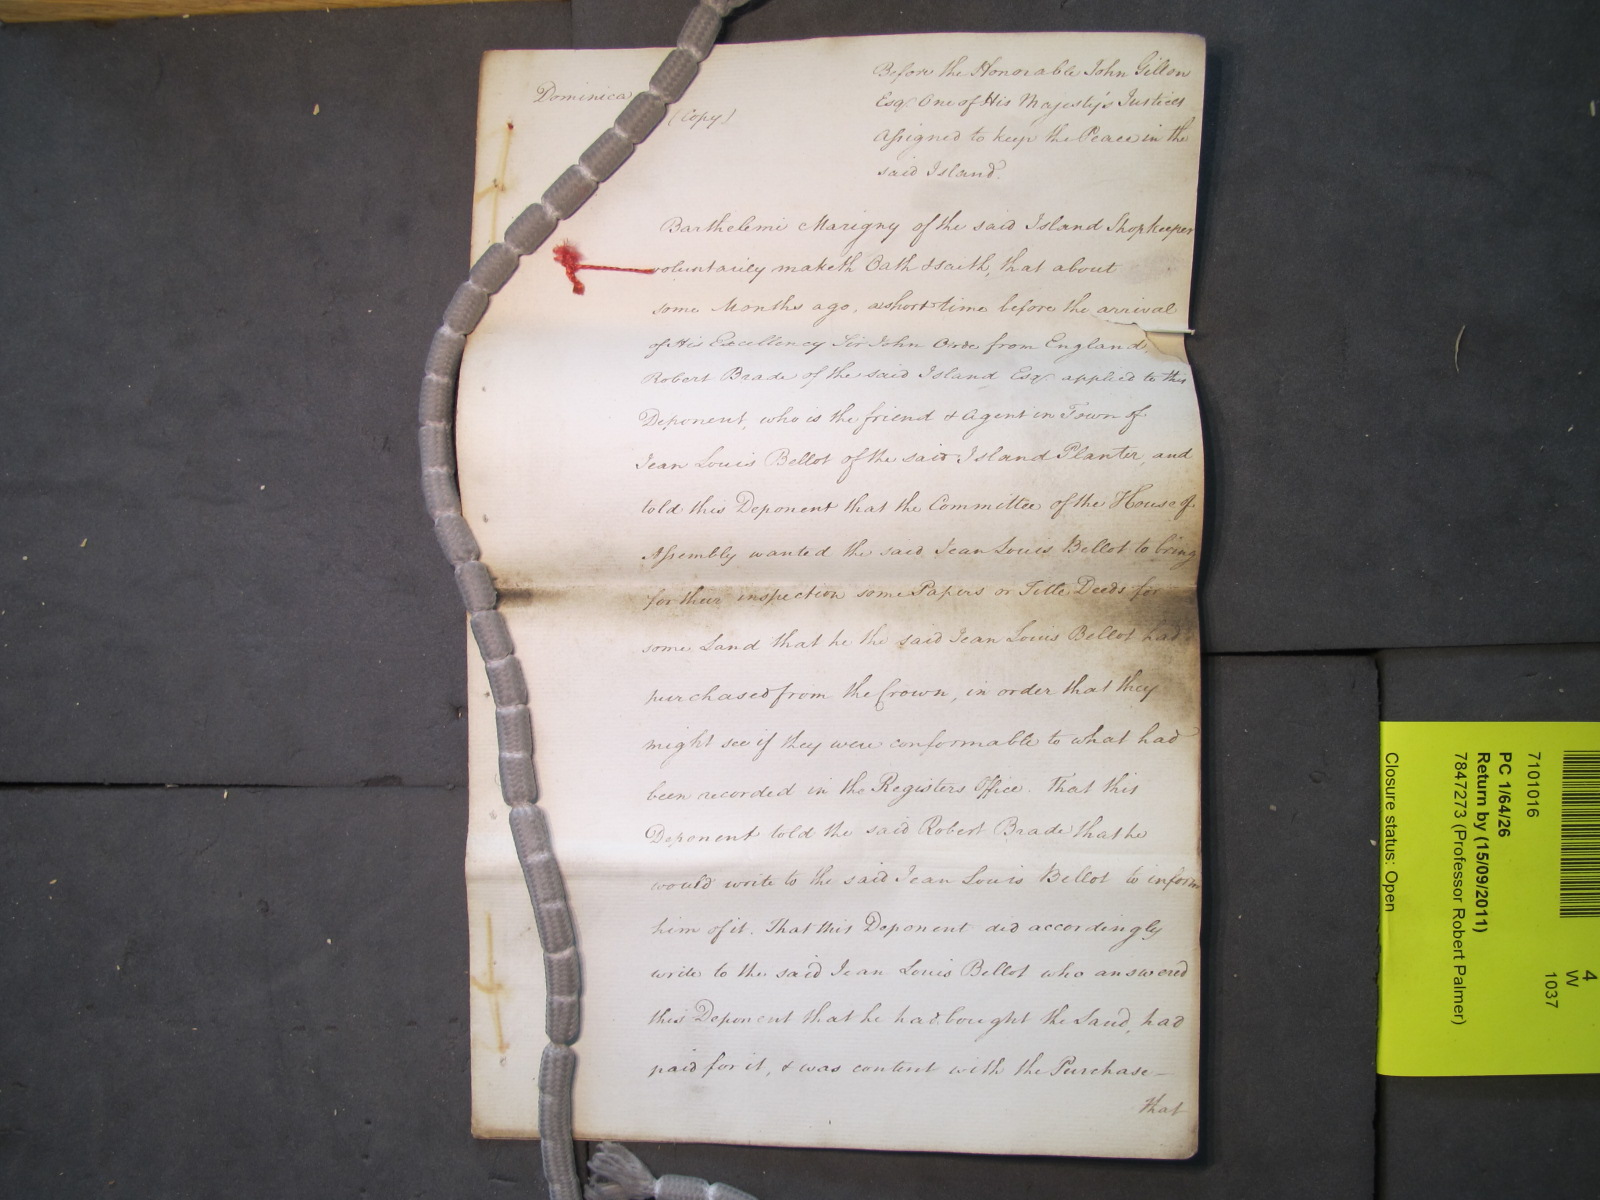 Dominica
(Copy)
Before the Honorable John Gillon
Esqr. One of His Majesty's Justices
Assigned to keep the Peace in the
said Island.
Barthelemi Marigny of the said Island Shopkeeper
voluntarily maketh Oath & saith, that about
some Months ago, a short time before the arrival
of His Excellency Sir John Orde from England,
Robert Brade of the said Island Esqr. applied to this
Deponent, who is the friend & Agent in Town of
Jean Louis Bellot of the said Island Planter, and
told this Deponent that the Committee of the House of
Assembly wanted the said Jean Louis Bellot to bring
for their inspection some Papers or Title Deeds for
some Land that he the said Jean Louis Bellot had
purchased from the Crown, in order that they
might see if they were conformable to what had
been recorded in the Registers Office. That this
Deponent told the said Robert Brade that he
would write to the said Jean Louis Bellot to inform
him of it. That this Deponent did accordingly
write to the said Jean Louis Bellot who answered
this Deponent that he had bought the Land, had
paid for it, & was content with the Purchase —
that
7101016
PC 1/64/26
Return by (15/09/2011)
7847273 (Professor Robert Palmer)
Closure status: Open
4
W
1037